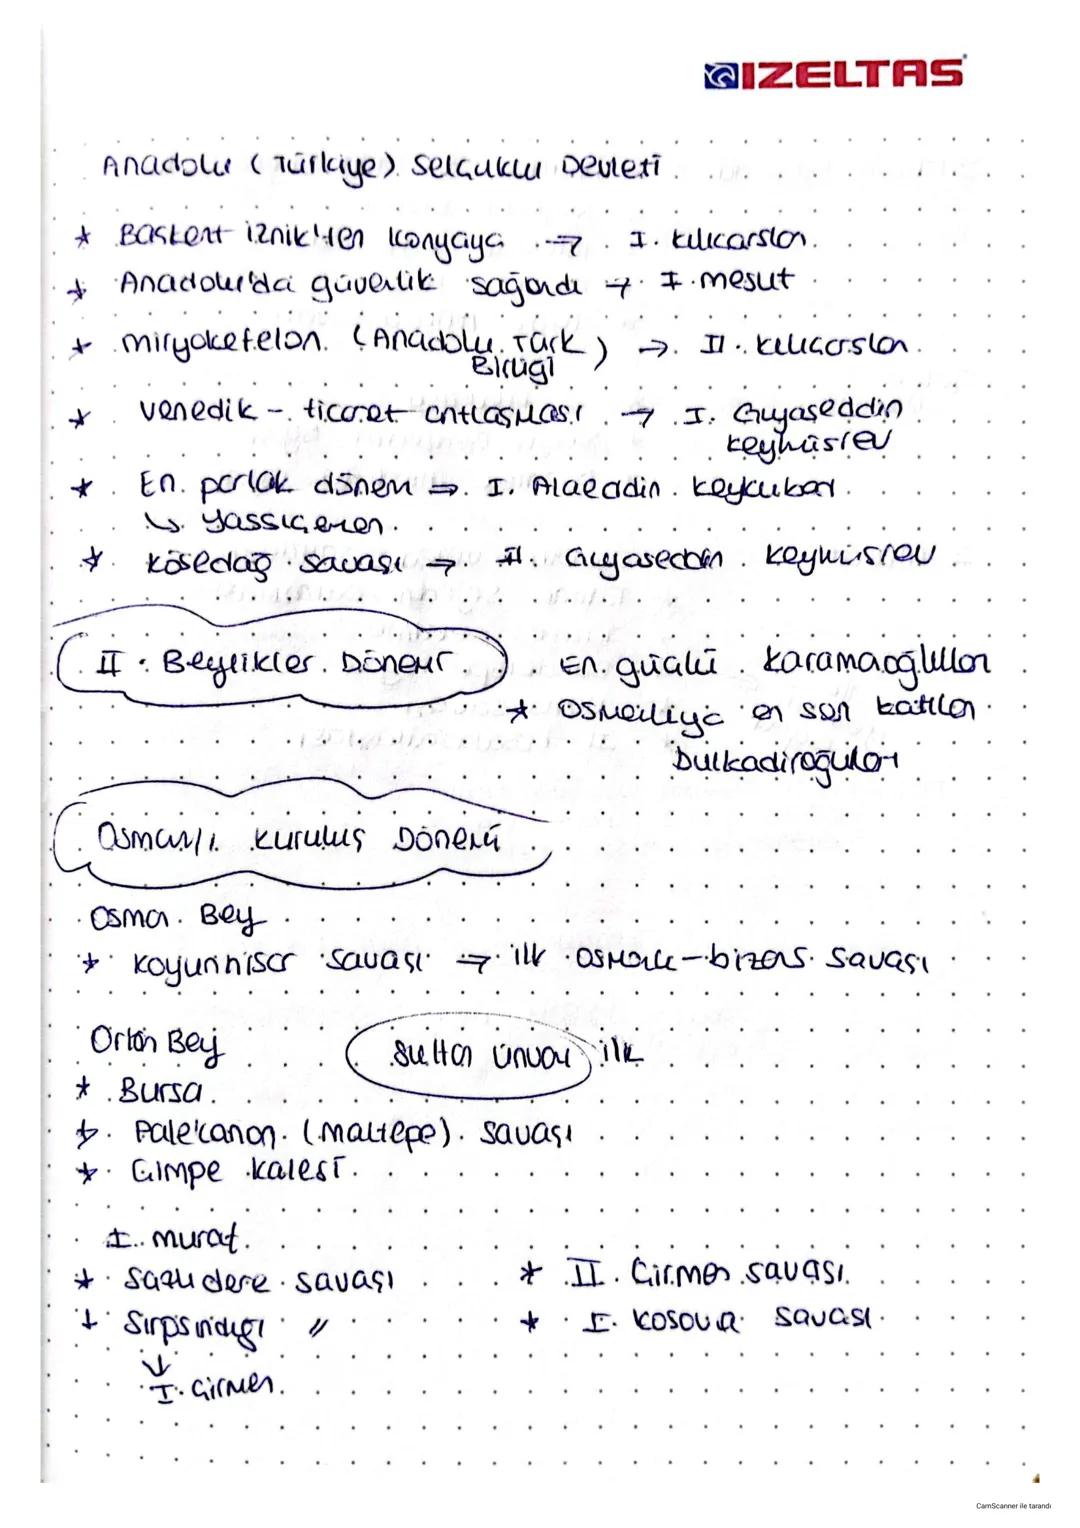 IZELTAS
Anadolu (Türkiye) Selçuklu Devleti
* Başkent iznik'ten Konyaya → I. Kılıcarslan
* Anadolu'da güvenlik sağlandı → I. mesut
* miryokefelon (Anadolu Türk Birliği) → II. Kılıcarslan
* venedik - ticaret antlaşması → I. Gıyaseddin
keyhüsrev
* En parlak dönem → I. Alaeddin Keykubat
↳ Yassıçemen
* Kösedağ savaşı → II. Gıyaseddin Keyhüsrev
II. Beylikler Dönemi
En güçlü Karamaoğlulları
* Osmanlıya en son katılan
Dulkadiroğuları
Osmanlı Kuruluş Dönemi
Osman Bey
* Koyunhisar savaşı → ilk Osmanlı-bizans savaşı
Orhan Bey
Sultan ünvanı ilk
* Bursa
* Palekanon (Maltepe) savaşı
* Çimpe kalesi
I. murat
* Sazlıdere savaşı
* Sırpsındığı "
↓
I. Çirmen
* II. Çirmen savaşı
* I. Kosova savaşı
CamScanner ile tarandı